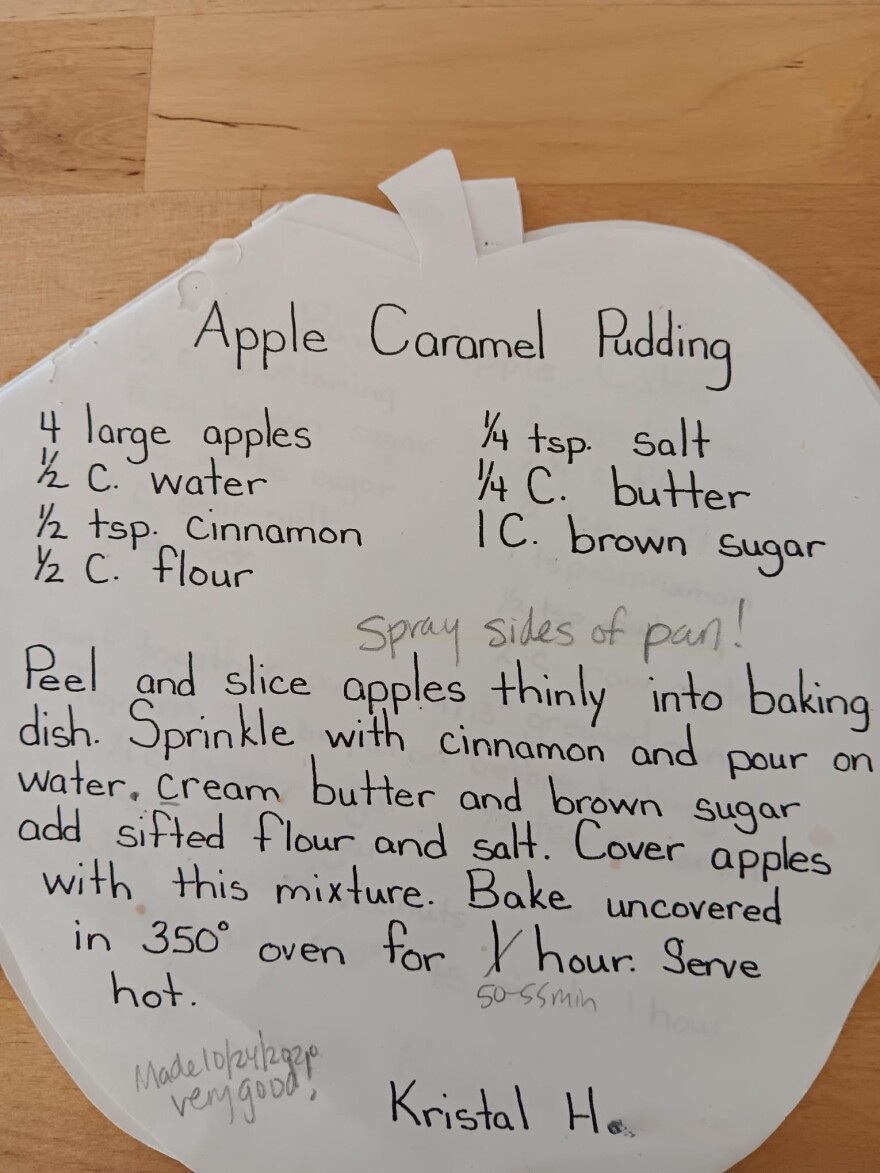 Apple Caramel Pudding
4 large apples
1/2 C. water
1/2 tsp. cinnamon
1/2 C. flour
1/4 tsp. salt
1/4 C. butter
1 C. brown sugar
Spray sides of pan!
Peel and slice apples thinly into baking
dish. Sprinkle with cinnamon and pour on
water. cream butter and brown sugar
add sifted flour and salt. Cover apples
with this mixture. Bake uncovered
in 350° oven for 1 hour. Serve
50-55min
hot.
Made 10/24/2020
very good!
Kristal H.